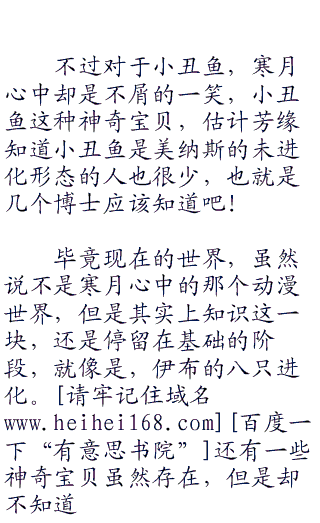 不过对于小丑鱼，寒月
心中却是不屑的一笑，小丑
鱼这种神奇宝贝，估计芳缘
知道小丑鱼是美纳斯的未进
化形态的人也很少，也就是
几个博士应该知道吧！
毕竟现在的世界，虽然
说不是寒月心中的那个动漫
世界，但是其实上知识这一
块，还是停留在基础的阶
段，就像是，伊布的八只进
化。[请牢记住域名
www.heihei168.com][百度一
下“有意思书院”]还有一些
神奇宝贝虽然存在，但是却
不知道